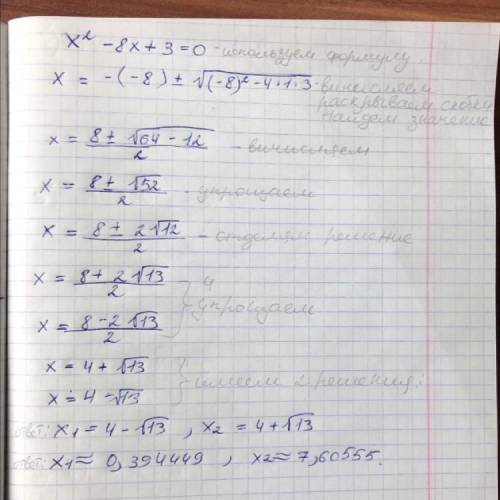 x² - 8x + 3 = 0 - используем формулу.
x = -(-8) ± √(-8)² - 4·1·3 - вычисляем
раскрываем скобки
найдем значение
x = 8 ± √64 - 12 / 2 - вычисляем
x = 8 ± √52 / 2 - упрощаем
x = 8 ± 2√12 / 2 - отделям решение
x = 8 + 2√13 / 2
x = 8 - 2√13 / 2 } и упрощаем
x = 4 + √13
x = 4 - √13 } имеем 2 решения:
ответ: x1 = 4 - √13 , x2 = 4 + √13
ответ: x1 ≈ 0,394449 , x2 ≈ 7,60555.